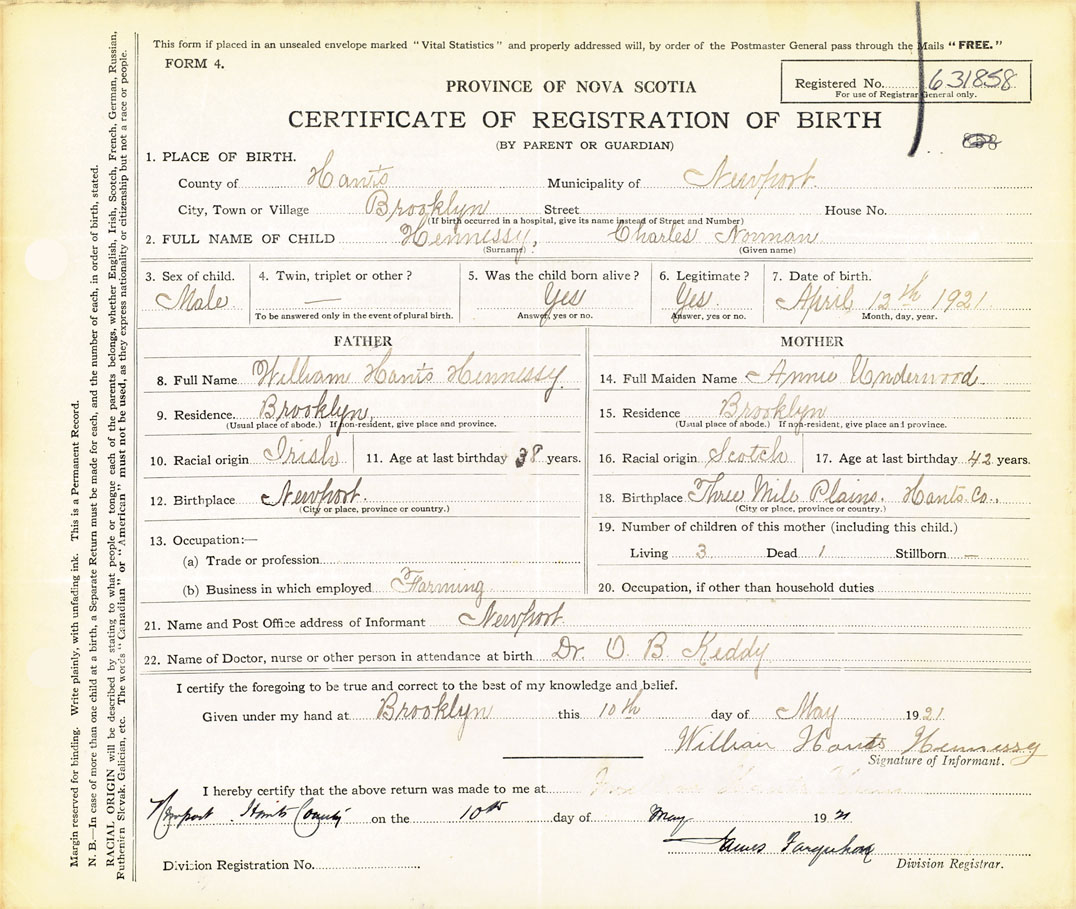 This form if placed in an unsealed envelope marked "Vital Statistics" and properly addressed will, by order of the Postmaster General pass through the Mails "FREE."
FORM 4.
Registered No. 631858
For use of Registrar General only.
PROVINCE OF NOVA SCOTIA
CERTIFICATE OF REGISTRATION OF BIRTH
(BY PARENT OR GUARDIAN)
1. PLACE OF BIRTH.
County of Hants Municipality of Newport
City, Town or Village Brooklyn Street House No.
(If birth occurred in a hospital, give its name instead of Street and Number)
2. FULL NAME OF CHILD Hennessy, Charles Norman
(Surname) (Given name)
3. Sex of child. 4. Twin, triplet or other? 5. Was the child born alive? 6. Legitimate? 7. Date of birth.
Male — Yes Yes. April 12th 1921
To be answered only in the event of plural birth. Answer, yes or no. Answer, yes or no. Month, day, year.
FATHER
8. Full Name William Hants Hennessy
9. Residence. Brooklyn,
(Usual place of abode.) If non-resident, give place and province.
10. Racial origin Irish 11. Age at last birthday 38 years.
12. Birthplace Newport.
(City or place, province or country.)
13. Occupation:—
(a) Trade or profession
(b) Business in which employed Farming
MOTHER
14. Full Maiden Name Annie Underwood
15. Residence Brooklyn
(Usual place of abode.) If non-resident, give place and province.
16. Racial origin Scotch 17. Age at last birthday 42 years.
18. Birthplace Three Mile Plains. Hants Co.
(City or place, province or country.)
19. Number of children of this mother (including this child.)
Living 3 Dead 1 Stillborn —
20. Occupation, if other than household duties
21. Name and Post Office address of Informant Newport.
22. Name of Doctor, nurse or other person in attendance at birth Dr. O. B. Keddy
I certify the foregoing to be true and correct to the best of my knowledge and belief.
Given under my hand at Brooklyn this 10th day of May 1921
William Hants Hennessy
Signature of Informant.
I hereby certify that the above return was made to me at
Newport Hants County on the 10th day of May 1921
James Farquhar
Division Registrar.
Division Registration No.
Margin reserved for binding. Write plainly, with unfading ink. This is a Permanent Record.
N. B.—In case of more than one child at a birth, a Separate Return must be made for each, and the number of each, in order of birth, stated.
RACIAL ORIGIN will be described by stating to what people or tongue each of the parents belongs, whether English, Irish, Scotch, French, German, Russian,
Ruthenian, Slovak, Galician, etc. The words "Canadian" or "American" must not be used, as they express nationality or citizenship but not a race or people.